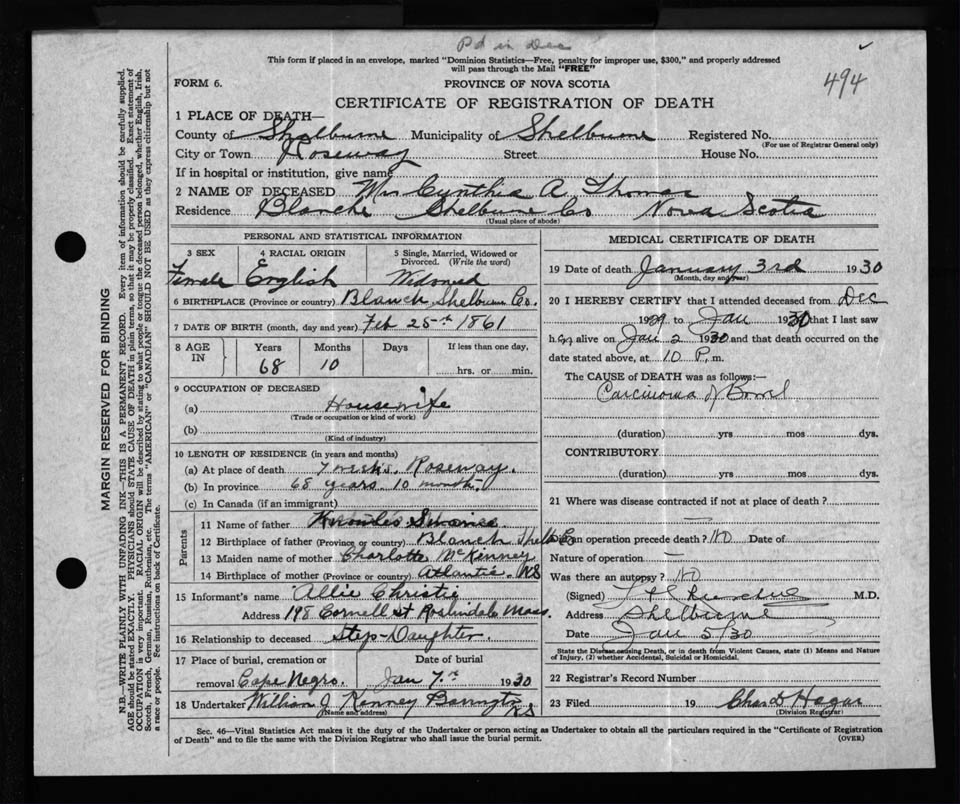 Pd in Dec
This form if placed in an envelope, marked "Dominion Statistics—Free, penalty for improper use, $300," and properly addressed
will pass through the Mail "FREE"
494
FORM 6.
PROVINCE OF NOVA SCOTIA
CERTIFICATE OF REGISTRATION OF DEATH
1 PLACE OF DEATH—
County of Shelburne Municipality of Shelburne Registered No.
(For use of Registrar General only)
City or Town Roseway Street House No.
If in hospital or institution, give name
2 NAME OF DECEASED Mrs Cynthia A Thomas
Residence Blanche Shelburne Co Nova Scotia
(Usual place of abode)
PERSONAL AND STATISTICAL INFORMATION
3 SEX
Female
4 RACIAL ORIGIN
English
5 Single, Married, Widowed or
Divorced. (Write the word)
Widowed
6 BIRTHPLACE (Province or country) Blanch Shelburne Co.
7 DATE OF BIRTH (month, day and year) Feb 25th 1861
8 AGE
IN
Years
68
Months
10
Days
If less than one day,
hrs. or min.
9 OCCUPATION OF DECEASED
(a) Housewife
(Trade or occupation or kind of work)
(b)
(Kind of industry)
10 LENGTH OF RESIDENCE (in years and months)
(a) At place of death 7 weeks. Roseway.
(b) In province 68 years. 10 months.
(c) In Canada (if an immigrant)
Parents
11 Name of father
12 Birthplace of father (Province or country) Blanch Shelb Co
13 Maiden name of mother Charlotte McKinney
14 Birthplace of mother (Province or country) Atlantic. NS
15 Informant's name Allie Christie
Address 198 Cornell St Roslindale Mass.
16 Relationship to deceased Step-Daughter.
17 Place of burial, cremation or
removal Cape Negro.
Date of burial
Jan 7th 1930
18 Undertaker William J Kenney Barrington
NS
(Name and address)
MEDICAL CERTIFICATE OF DEATH
19 Date of death January 3rd 1930
(Month, day and year)
20 I HEREBY CERTIFY that I attended deceased from Dec
1929 to Jan 1930 that I last saw
her alive on Jan 2 1930 and that death occurred on the
date stated above, at 10 P. m.
The CAUSE of DEATH was as follows:—
Carcinoma of Bowel
(duration) yrs mos dys.
CONTRIBUTORY
(duration) yrs mos dys.
21 Where was disease contracted if not at place of death?
Did an operation precede death? No Date of
Nature of operation
Was there an autopsy? No
(Signed) M.D.
Address Shelburne
Date Jan 5/30
State the Disease causing Death, or in death from Violent Causes, state (1) Means and Nature
of Injury, (2) whether Accidental, Suicidal or Homicidal.
22 Registrar's Record Number
23 Filed 19 Chas D Hagar
(Division Registrar)
Sec. 46—Vital Statistics Act makes it the duty of the Undertaker or person acting as Undertaker to obtain all the particulars required in the "Certificate of Registration
of Death" and to file the same with the Division Registrar who shall issue the burial permit.
(OVER)
MARGIN RESERVED FOR BINDING
N.B.—WRITE PLAINLY WITH UNFADING INK—THIS IS A PERMANENT RECORD. Every item of information should be carefully supplied.
AGE should be stated EXACTLY. PHYSICIANS should STATE CAUSE OF DEATH in plain terms, so that it may be properly classified. Exact statement of
OCCUPATION is very important. RACIAL ORIGIN will be described by stating to what people or tongue the deceased person belonged, whether English, Irish,
Scotch, French, German, Russian, Ruthenian, etc. The terms "AMERICAN" or "CANADIAN" SHOULD NOT BE USED as they express citizenship but not
a race or people. See instructions on back of Certificate.